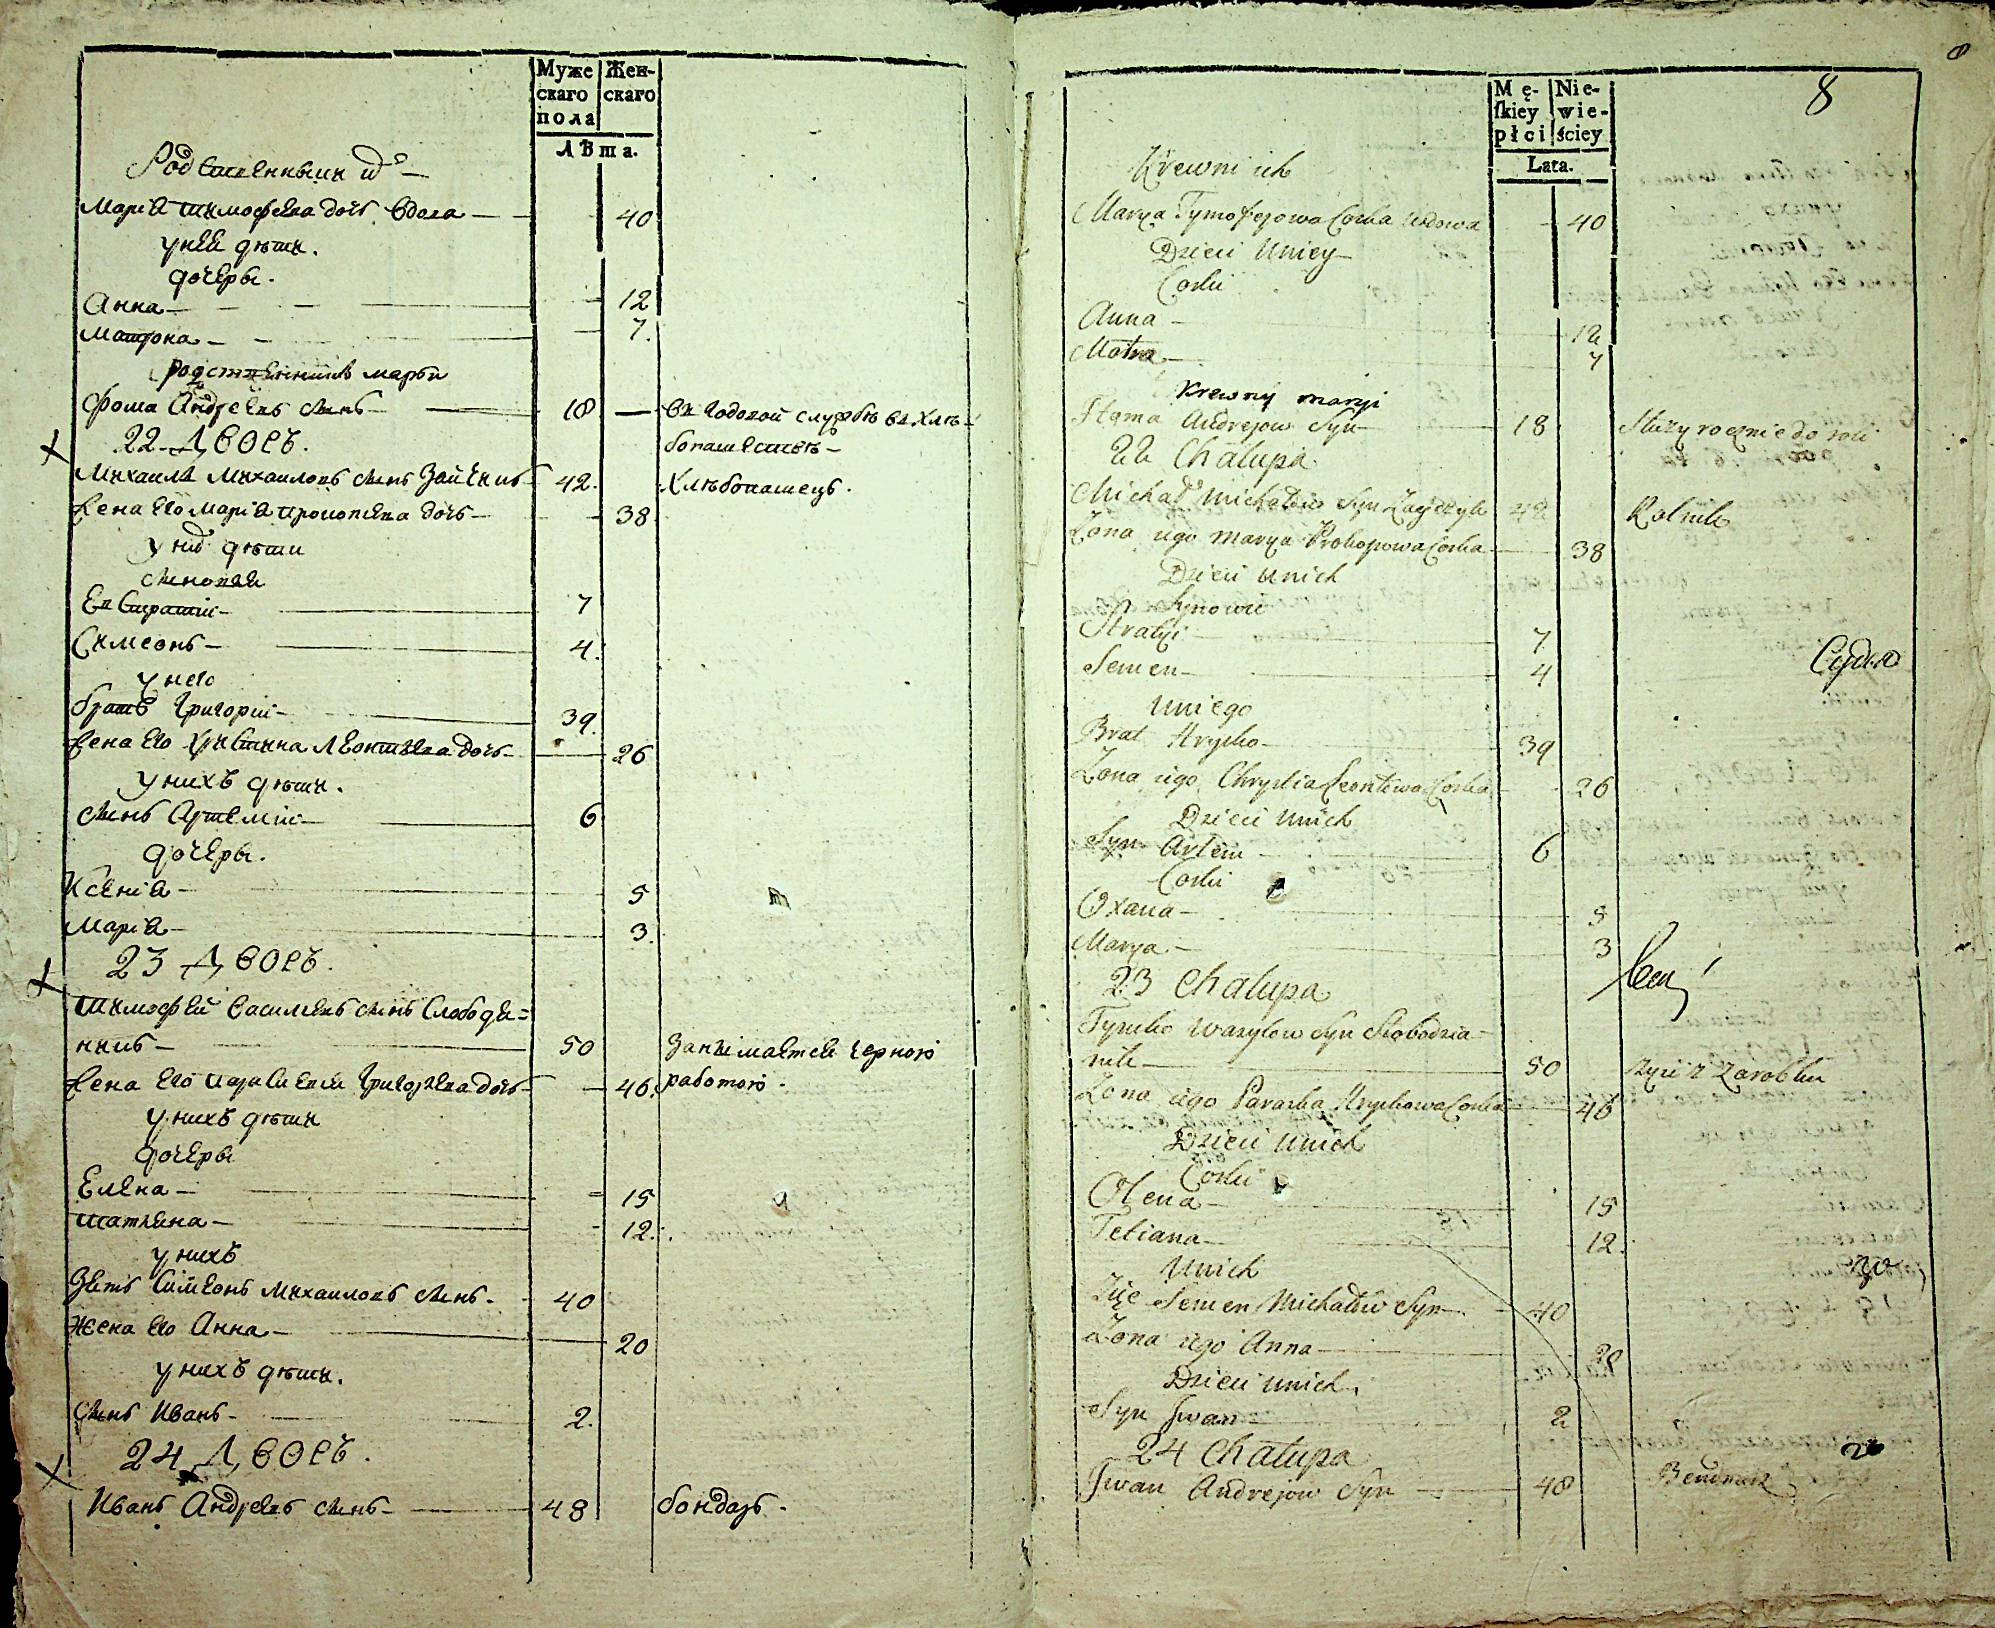 Муже
скаго
пола
Жен-
скаго
Лѣта.
Марія Тимофеева дочь вдова — 40
у ней дѣти.
дочери.
Анна — 12
Матрона — 7.
родственникъ Марьи
Фома Андреевъ сынъ — 18 — въ годовой службѣ въ хлѣ-
бопашествѣ —
22 Дворъ.
Михаилъ Михаиловъ сынъ Зайчикъ — 42. Хлѣбопашецъ.
Жена его Марія Прокопіева дочь — 38
у них дѣти
сыновья
Евстратій — 7
Симеонъ — 4.
у него
братъ Григорій — 39.
Жена его Христина Леонтіева дочь — 26
у нихъ дѣти.
сынъ Артемій — 6
дочери.
Ксенія — 5
Марія — 3.
23 Дворъ.
Тимофей Васильевъ сынъ Слободя=
никъ — 50 Занимается черною
Жена его Параскевія Григорьева дочь — 46. работою.
у нихъ дѣти
дочери
Елена — 15
Татіана — 12.
у нихъ
Зять Симеонъ Михаиловъ сынъ — 40
Жена его Анна — 20
у нихъ дѣти.
сынъ Иванъ — 2.
24 Дворъ.
Иванъ Андреевъ сынъ — 48 бондарь.
8
Mę-
skiey
płci
Nie-
wie-
ściey
Lata.
8
Krewni ich
Marya Tymofejowa Corka wdowa 40
Dzieci Uniey —
Corki
Anna — 12
Motra — 7
Krewny maryi
Homa Andrejow Syn — 18 Służy rocznie do roli
22 Chałupa
Michał Michałow Syn Zayczyk 42 Rolnik
Żona iego Marya Prokopowa Corka — 38
Dzieci Unich
Synowie
Stratyi — 7
Semen — 4
Uniego
Brat Hryćko — 39
Żona iego Chrystia Leontiowa Corka — 26
Dzieci Unich
Syn Artem — 6
Corki
Oxana — 5
Marya — 3
23 Chałupa
Tymko Wasylow Syn Słobodzia-
nik — 50 Żyie z zarobku
Żona iego Paraska Hryćkowa Corka — 46
Dzieci Unich
Corki
Olena — 15
Tetiana — 12.
Unich
Zięć Semen Michałow Syn — 40
Żona iego Anna — 20
Dzieci Unich
Syn Iwan — 2
24 Chałupa
Iwan Andrejow Syn — 48 Bendnarz